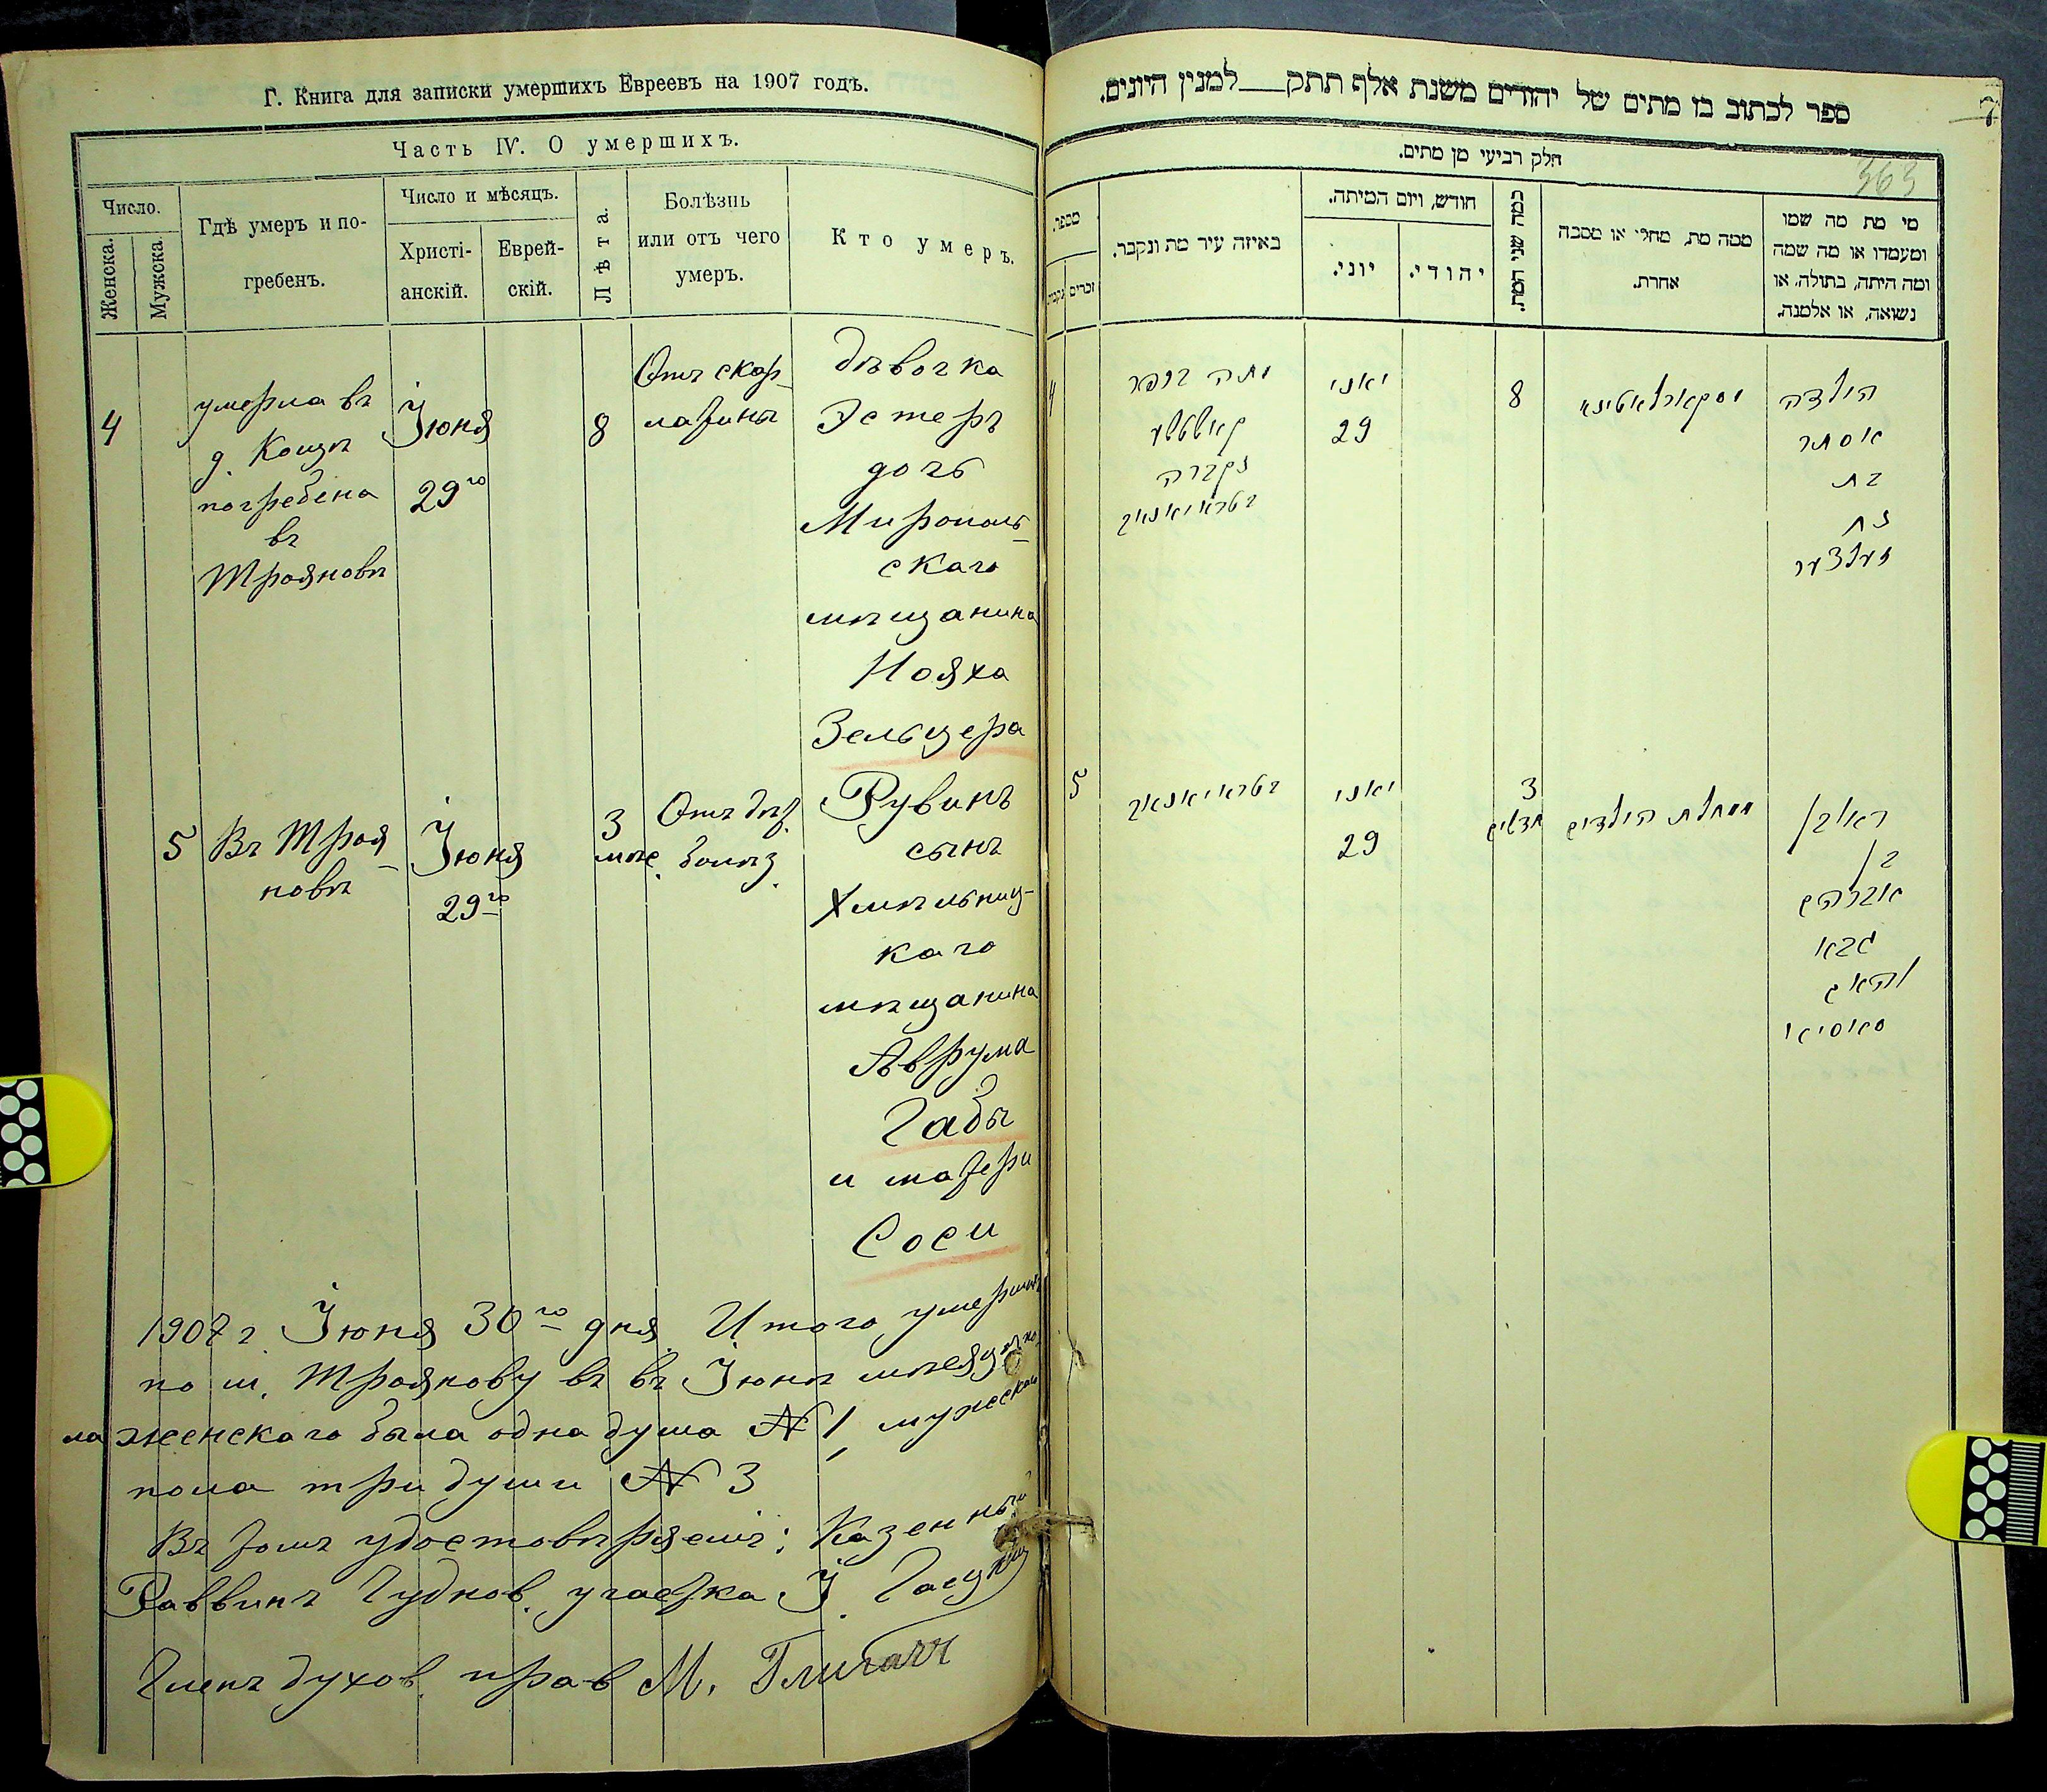 Г. Книга для записки умершихъ Евреевъ на 1907 годъ.
Часть IV. О умершихъ.
Число.
Женска.
Мужска.
Гдѣ умеръ и по-
гребенъ.
Число и мѣсяцъ.
Христі-
анскій.
Еврей-
скій.
Лѣта.
Болѣзнь
или отъ чего
умеръ.
Кто умеръ.
4
умерла въ
д. Кощѣ
погребена
въ
Трояновѣ
Іюня
29го
8
Отъ скар-
латины
дѣвочка
Эстеръ
дочь
Мирополь-
скаго
мѣщанина
Нояха
Зельцера
5
Въ Троя-
новѣ
Іюня
29го
3
мѣс.
Отъ дѣт.
болѣз.
Рувинъ
сынъ
Хмѣльниц-
каго
мѣщанина
Аврума
Габы
и матери
Соси
1907 г. Іюня 30го дня. Итого умерших
по м. Троянову въ въ Іюнѣ мѣсяцѣ по
ла женскаго была одна душа № 1, мужеска
пола три души № 3
Въ томъ удостовѣряемъ: Казенный
Раввинъ Чуднов. участка І.
Членъ духов. прав М.
ספר לכתוב בו מתים של יהודים משנת אלף תתק___למנין היונים.
7
חלק רביעי מן מתים.
363
מספר.
זכרים
נקבות
באיזה עיר מת ונקבר.
חודש, ויום המיתה.
יוני.
יהודי.
כמה שני המת.
ממה מת, מחלי או מסבה
אחרת.
מי מת מה שמו
ומעמדו או מה שמה
ומה היתה, בתולה, או
נשואה, או אלמנה.
4
נקברה
בטראיאנאוו
יאני
29
8
הילדה
אסתר
בת
נח
זעלצער
5
בטראיאנאוו
יאני
29
3
חדשים
ממחלת הילדים
ראובן
בן
אברהם
גבא
והאם
סאסיא